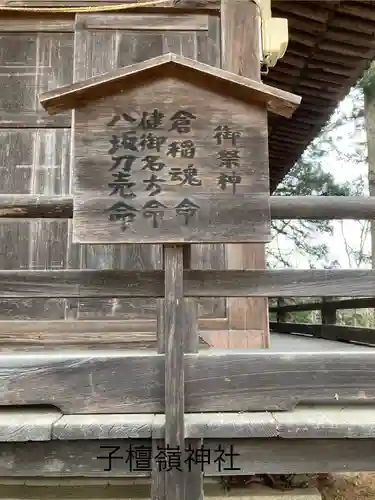 御祭神
倉稲魂命
健御名方命
八坂刀売命
子檀嶺神社